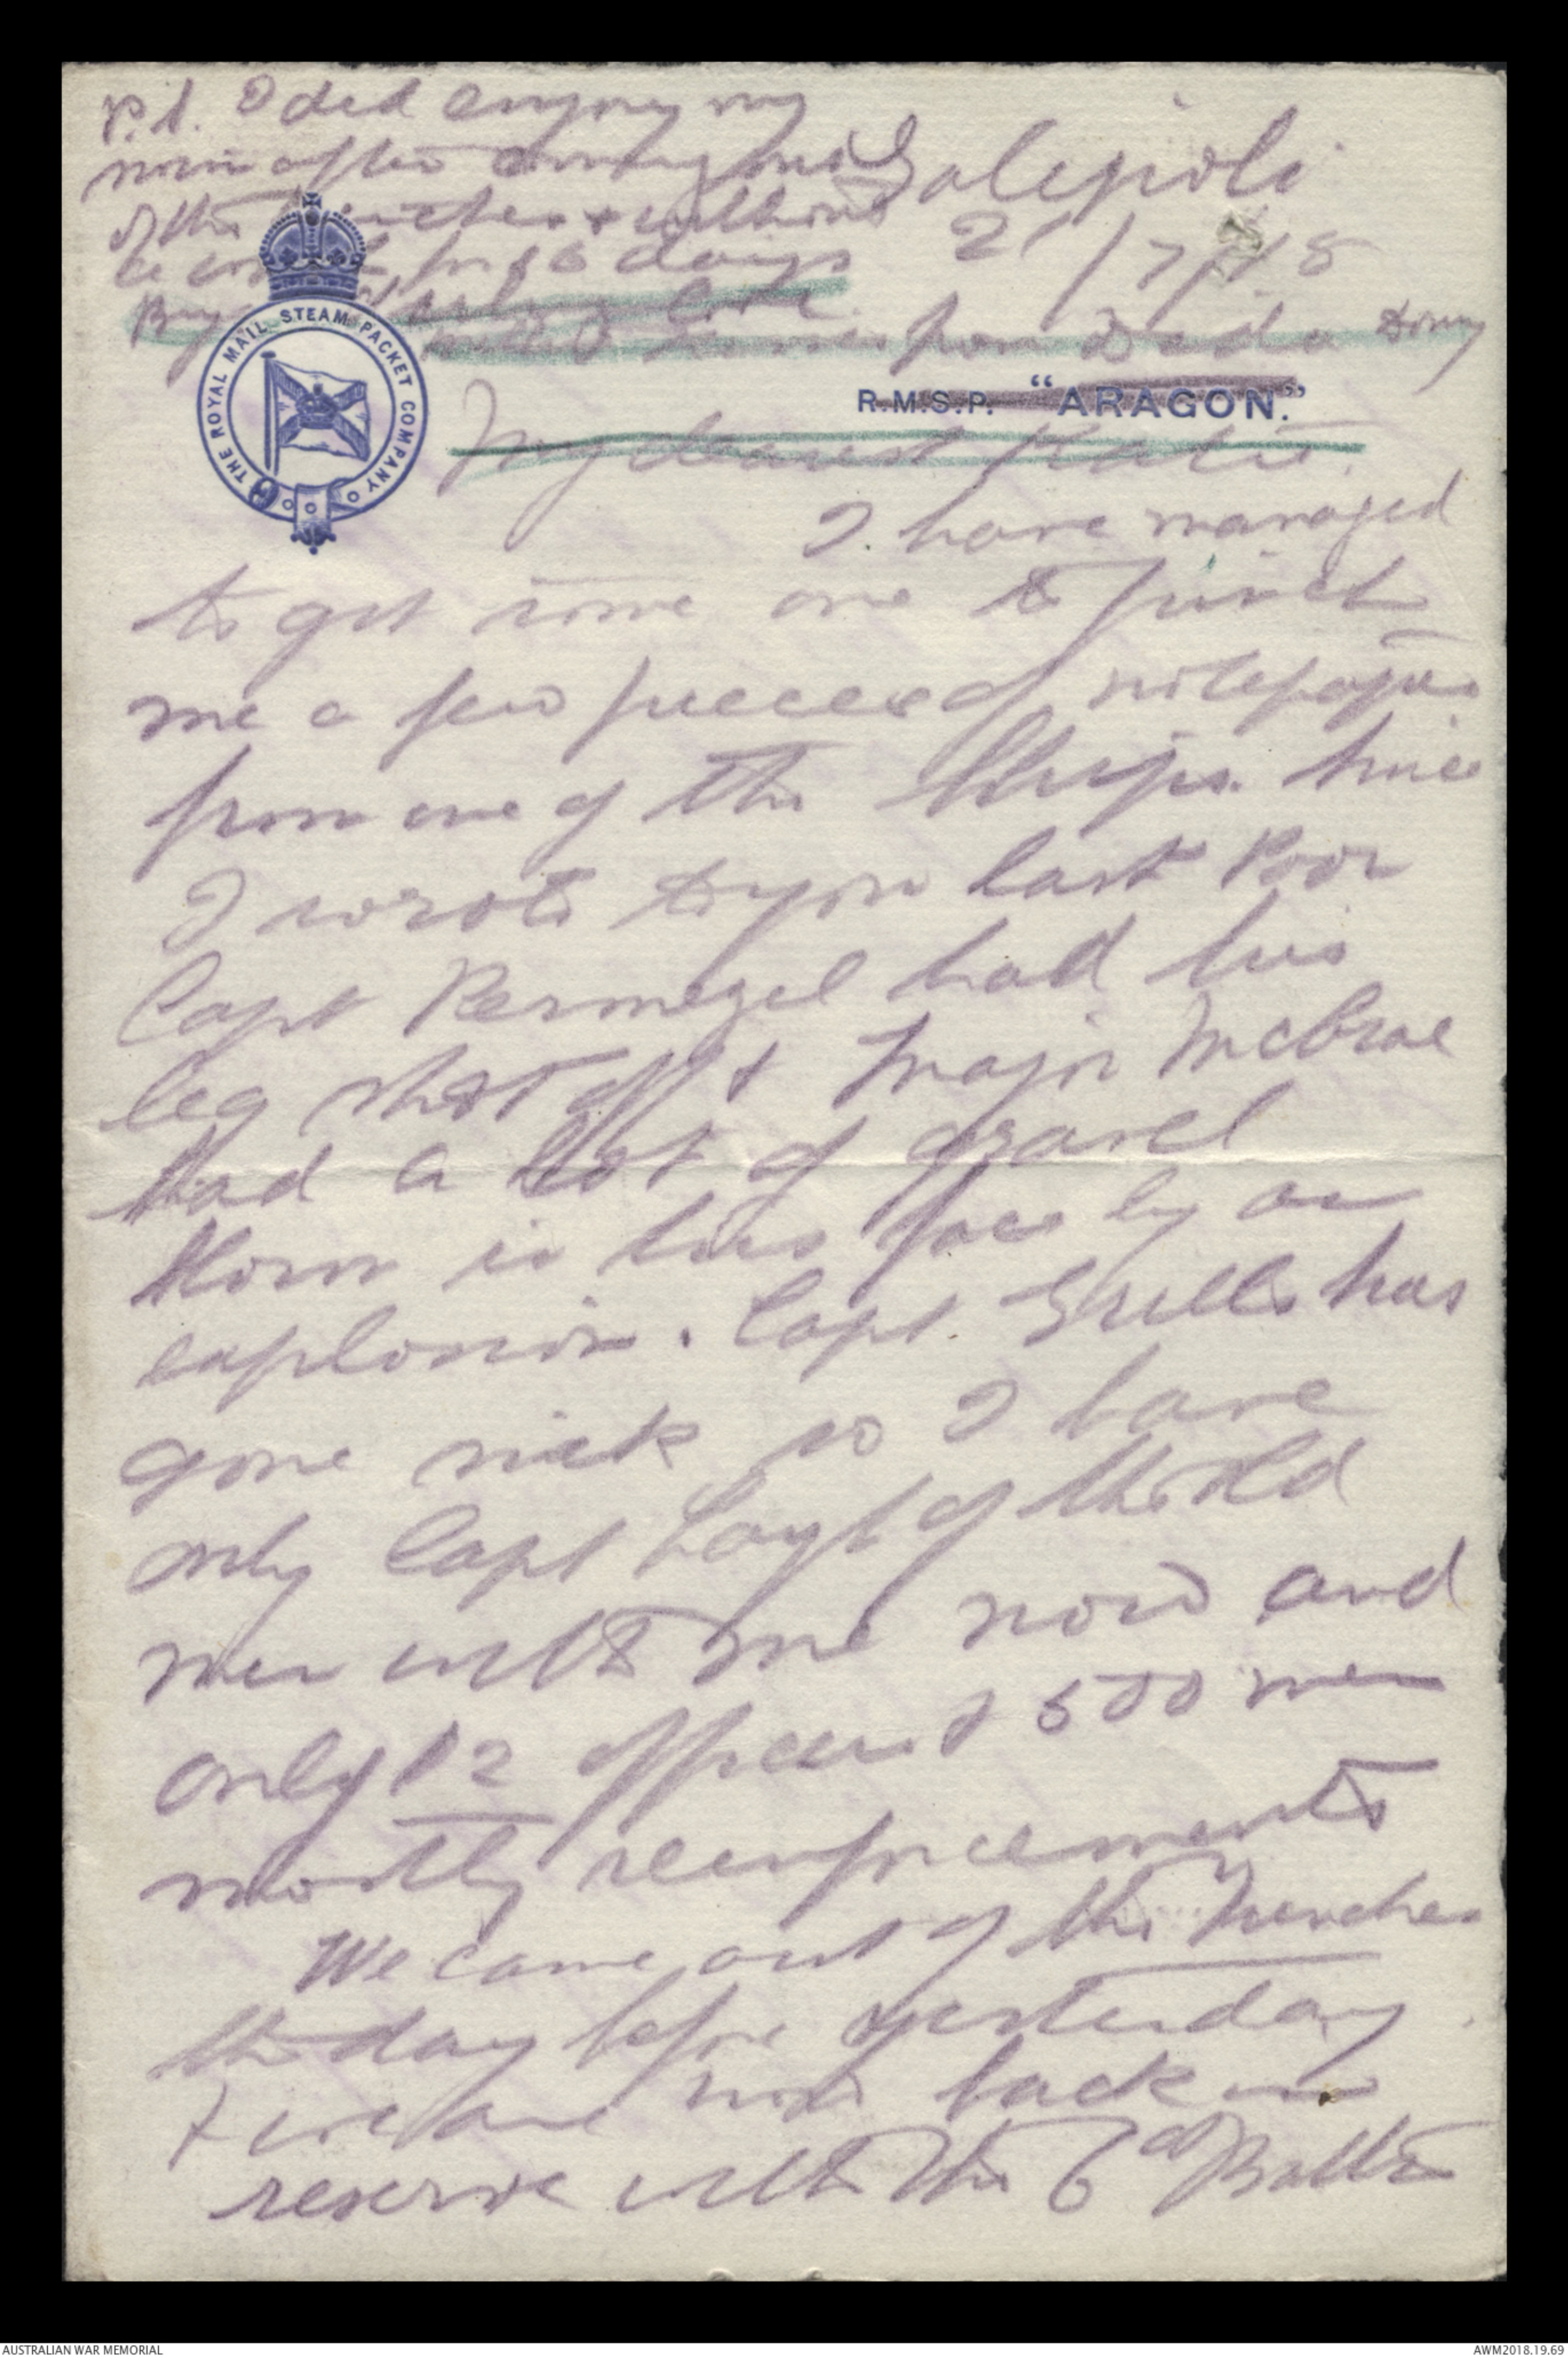 P.S. I did enjoy my
swim after coming out
of the trenches & without
a for 16 days
Galipoli
2 /7/15
kisses from Dada
My dearest Katie.
THE ROYAL MAIL STEAM PACKET COMPANY
R.M.S.P. "ARAGON."
I have managed
to get some one to pinch
me a few pieces of notepaper
from one of the ships. Since
I wrote to you last Poor
Capt Permezel had his
leg shot off & Major McCrae
had a lot of gravel
blown in his face by an
explosion. Capt. has
gone sick so I have
only Capt Layh of the old
men with me now and
only 12 officers & 500 men
mostly reinforcements
We came out of the trenches
the day before yesterday
& we are now back in
reserve with the 6th Battn
AUSTRALIAN WAR MEMORIAL
AWM2018.19.69